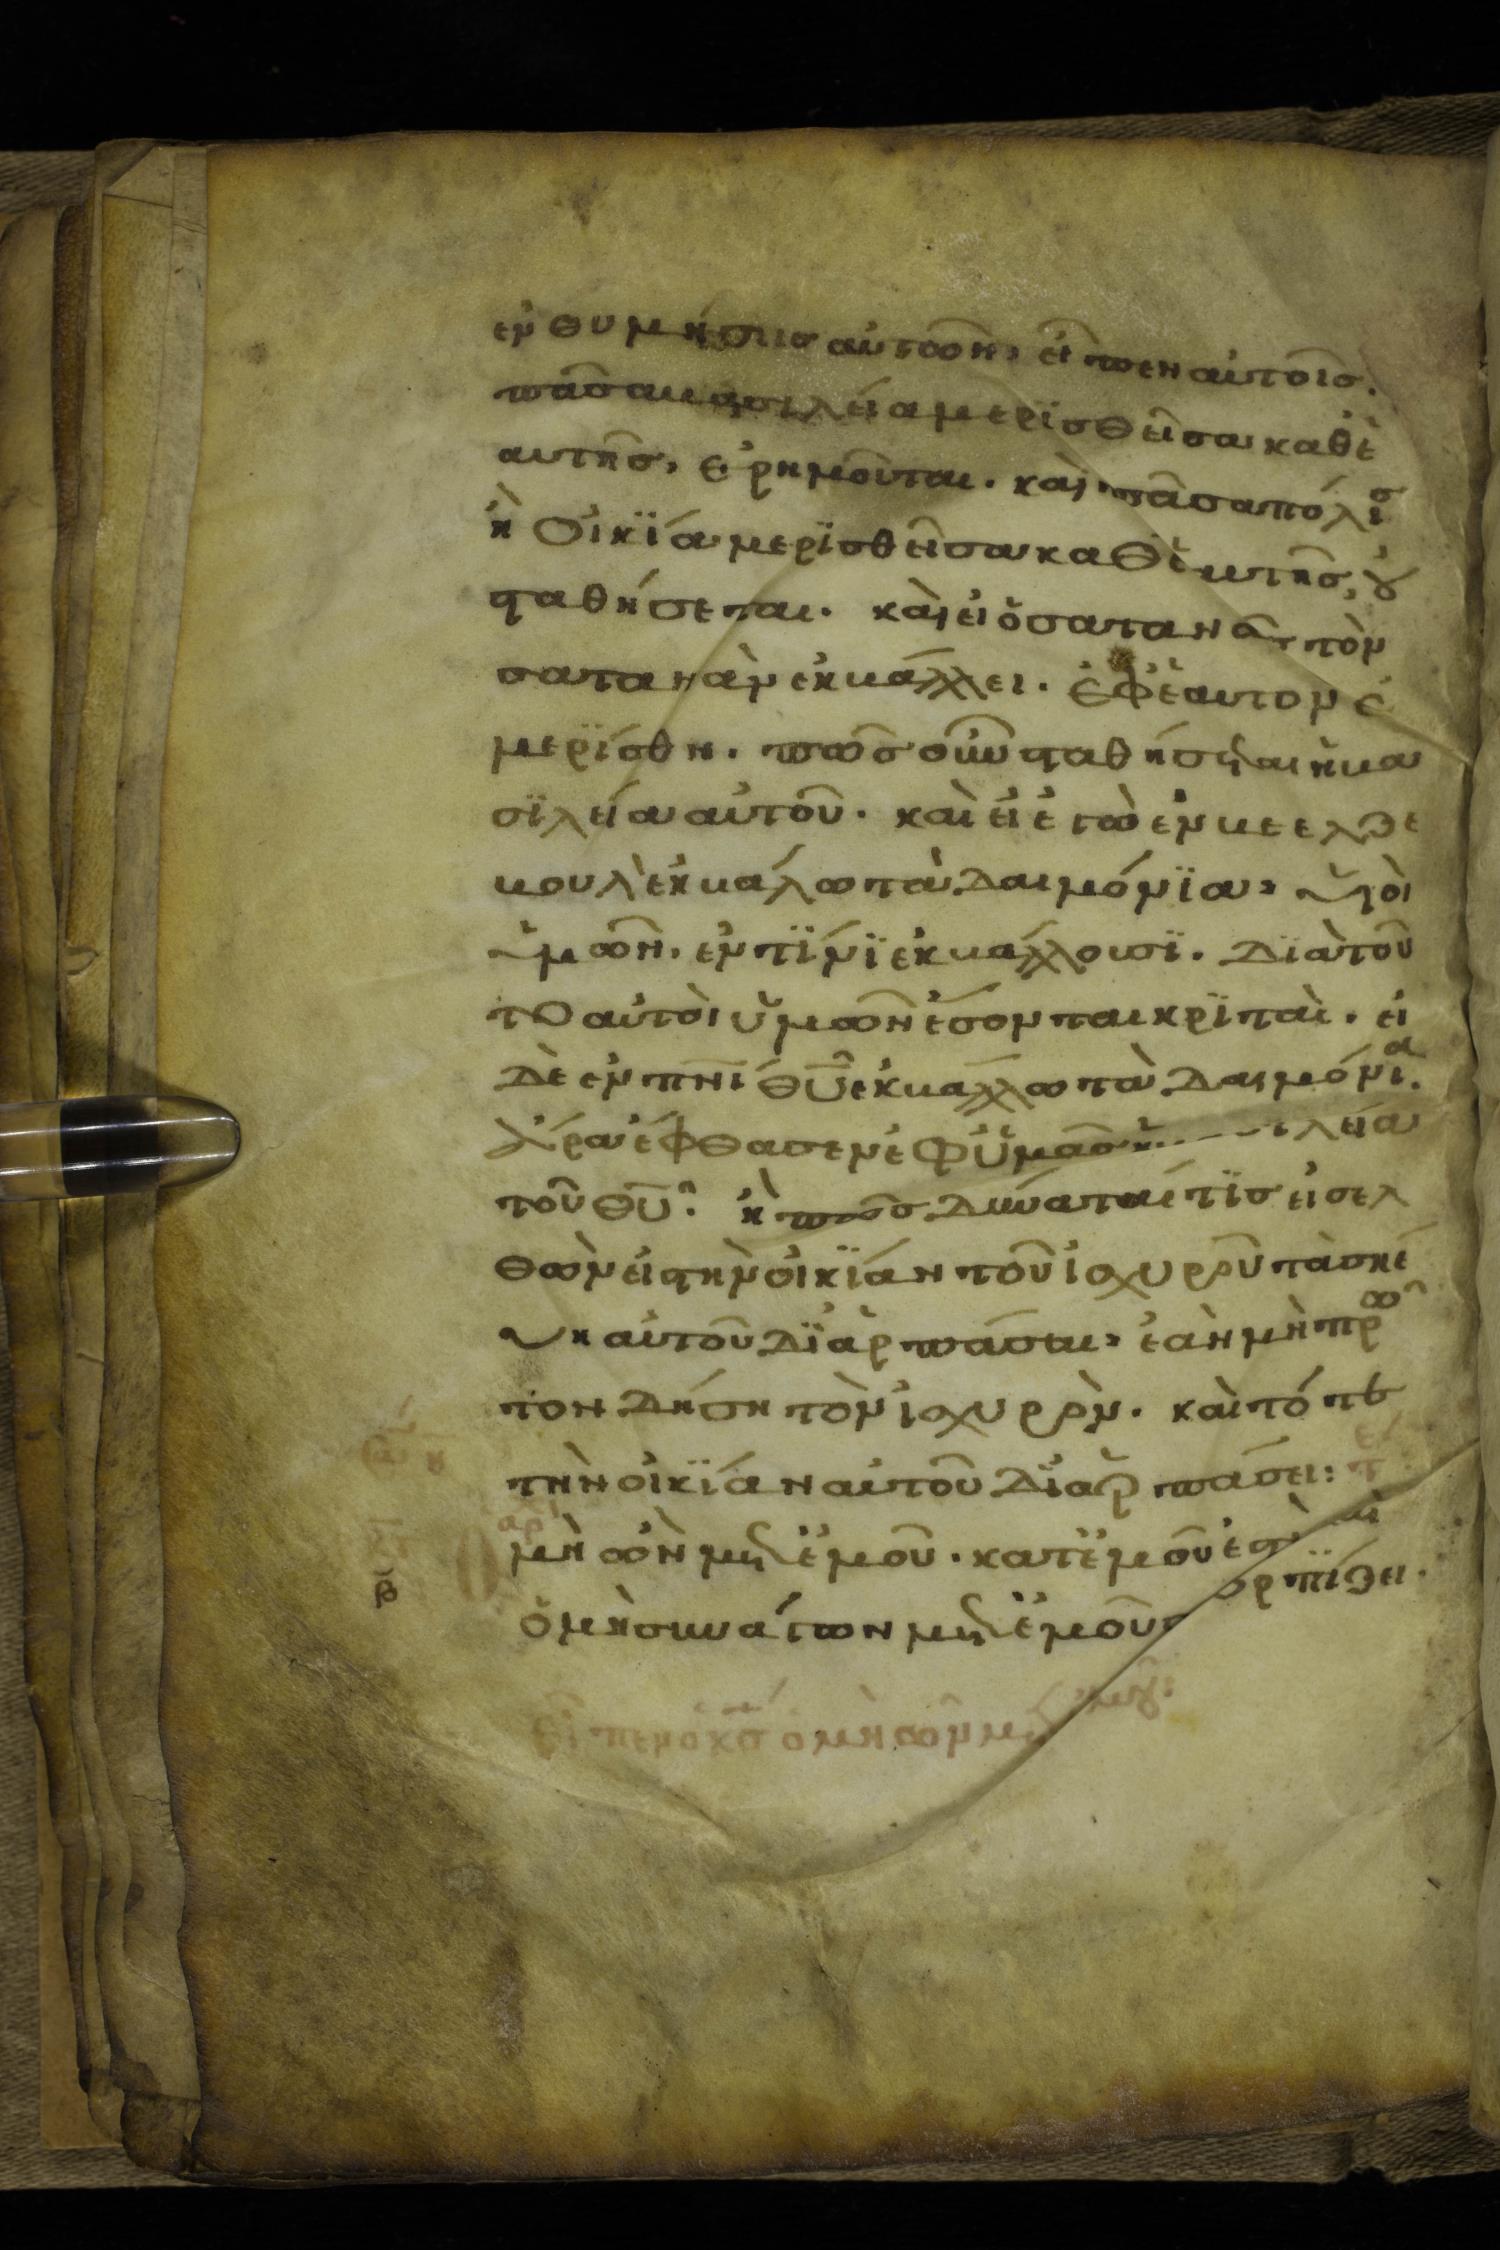 ἐνθυμήσεις αὐτῶν, εἶπεν αὐτοῖς.
πᾶσα βασιλεία μερϊσθεῖσα καθ ἑ
αυτῆς, ἐρημοῦται. καὶ πᾶσα πόλις
ἢ οἰκΐα μερϊσθεῖσα καθ ἑαυτῆς, οὐ
σταθήσεται. καὶ εἰ ὁ σατανᾶς τὸν
σατανὰν ἐκβάλλει. ἐφ ἑαυτον ἐ
μερΐσθη. πῶς οὖν σταθήσεται ἡ βα
σϊλεία αὐτοῦ. καὶ εἰ ἐγὼ ἐν βεελζε
βουλ ἐκβάλω τὰ δαιμόνϊα, οἱ υἱοὶ
ὑμῶν, ἐν τΐνϊ ἐκβάλλουσϊ. δϊὰ τοῦ
το αὐτοὶ ὑμῶν ἔσονται κρϊταὶ. εἰ
δὲ ἐν πνι θυ ἐκβάλλω τὰ δαιμόνια.
ἄρα ἔφθασεν ἐφ ὑμᾶς ἡ λεία
τοῦ θυ. ἢ πῶς δύναται τϊς εἰσελ
θὼν εἰς τὴν οἰκΐαν τοῦ ἰσχυροῦ τὰ σκέ
υη αὐτοῦ δϊαρπάσαι, ἐὰν μὴ πρῶ
τον δήση τὸν ἰσχυρὸν. καὶ τότε
τὴν οἰκΐαν αὐτοῦ δϊαρπάσει: τε
Ὁ μὴ ὢν μετ ἐμοῦ. κατ ἐμοῦ ἐστὶ καὶ
ὁ μὴ συνάγων μετ ἐμοῦ σκορπΐζει.
εἶπεν ὁ κς ὁ μὴ ὢν μετ ἐμοῦ: